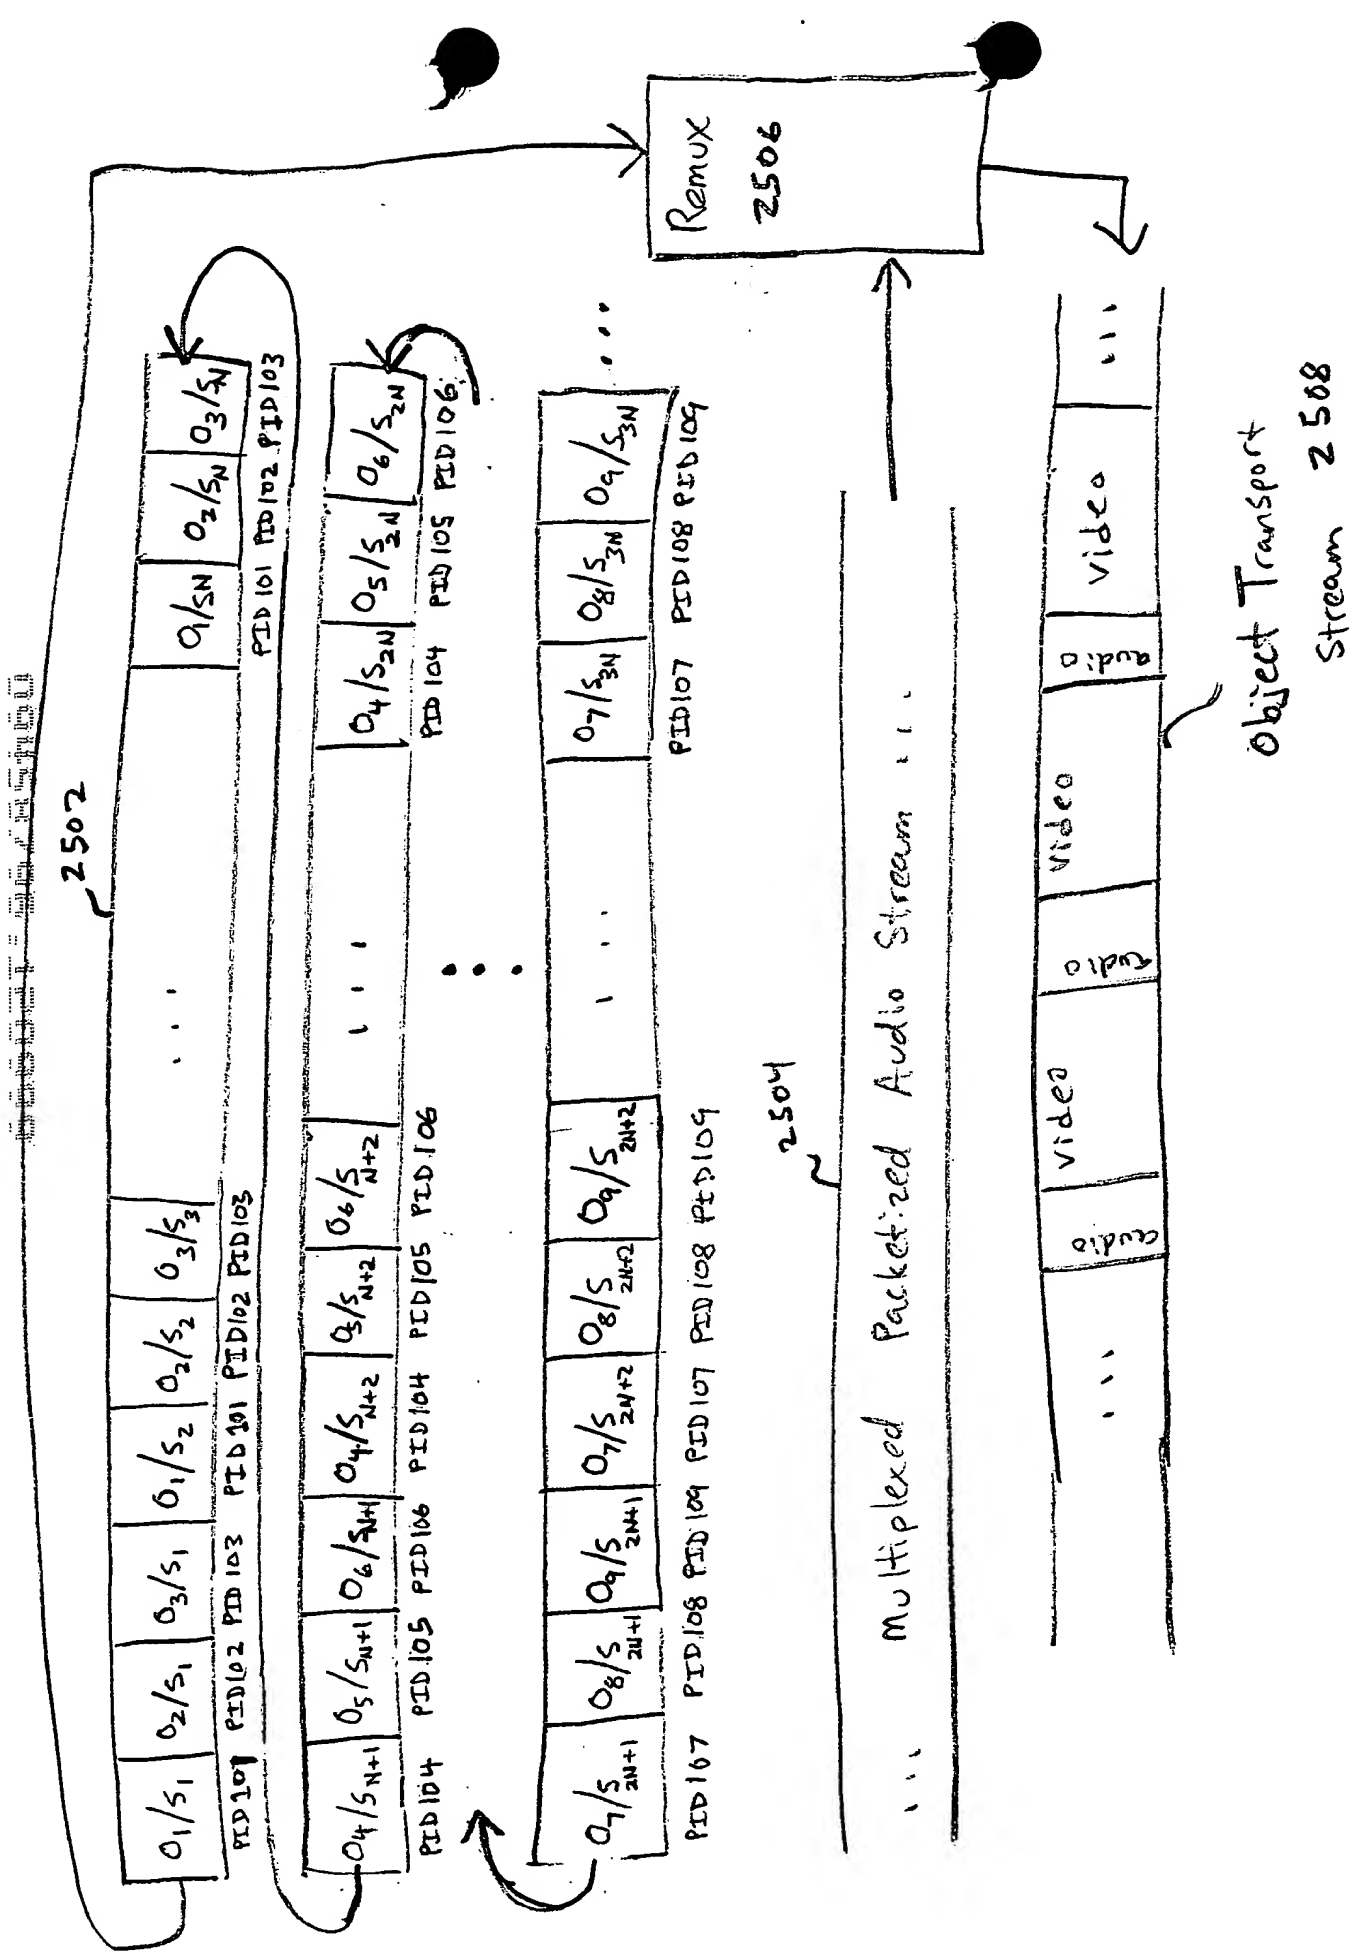 2502
O1/S1 O2/S1 O3/S1 O1/S2 O2/S2 O3/S3 ... O1/SN O2/SN O3/SN
PID101 PID102 PID103 PID101 PID102 PID103 PID101 PID102 PID103
O4/SN+1 O5/SN+1 O6/SN+1 O4/SN+2 O5/SN+2 O6/SN+2 ... O4/S2N O5/S2N O6/S2N
PID104 PID105 PID106 PID104 PID105 PID106 PID104 PID105 PID106
...
O7/S2N+1 O8/S2N+1 O9/S2N+1 O7/S2N+2 O8/S2N+2 O9/S2N+2 ... O7/S3N O8/S3N O9/S3N ...
PID107 PID108 PID109 PID107 PID108 PID109 PID107 PID108 PID109
2504
... Multiplexed Packetized Audio Stream ...
Remux
2506
... audio Video audio Video audio Video ...
Object Transport
Stream 2508